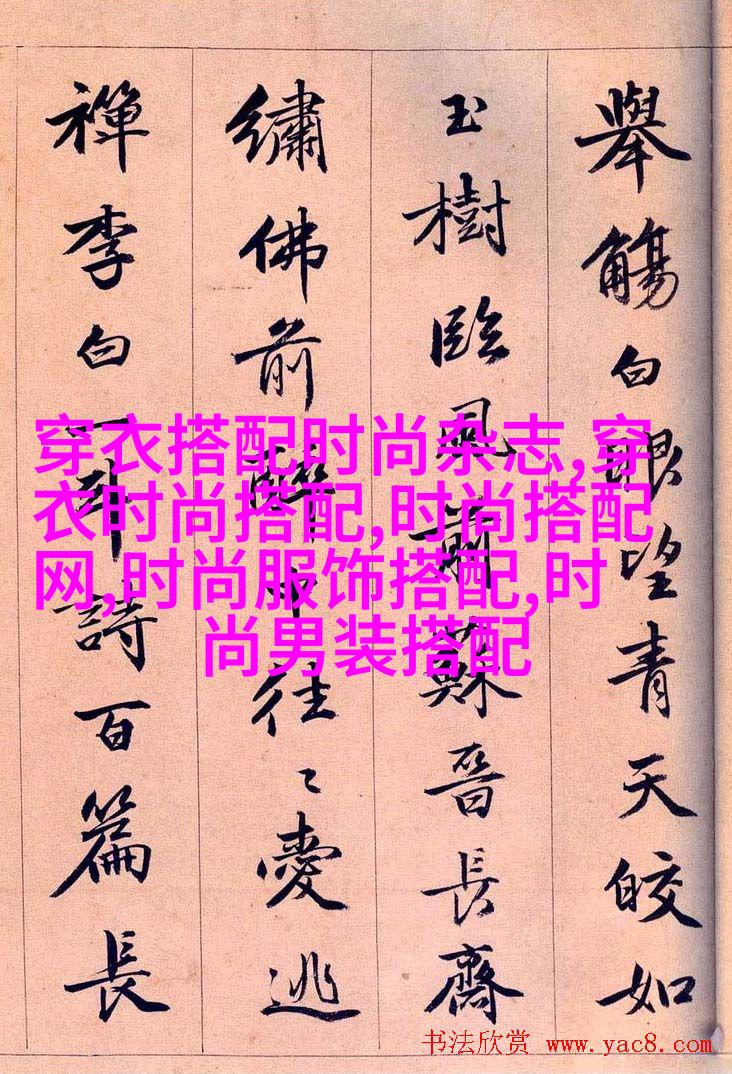 舉觴白眼望青天皎如
玉樹臨風前蘇晉長齋
繡佛前醉中往〻愛逃
禪李白一斗詩百篇長
穿衣搭配时尚杂志,穿
衣时尚搭配,时尚搭配
网,时尚服饰搭配,时
尚男装搭配
书法欣赏 www.yac8.com